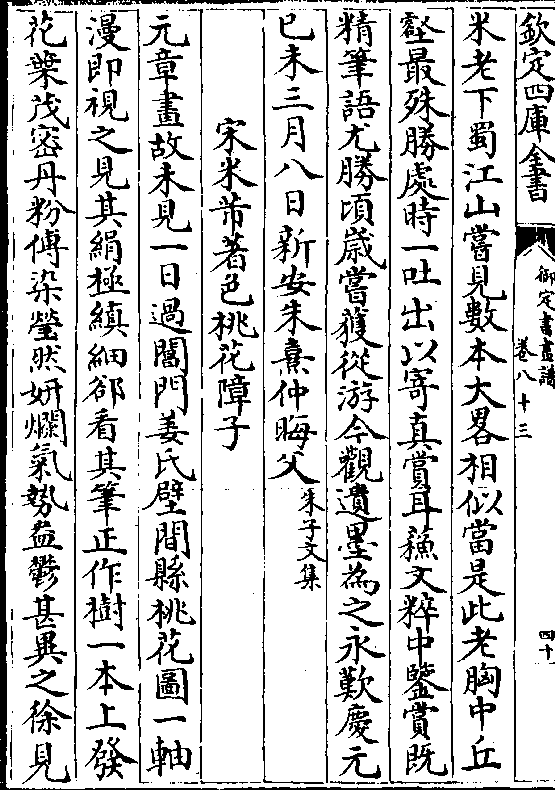 欽定四庫全書
御定書畫譜
卷八十三
四十
米老下蜀江山嘗見數本大畧相似當是此老胸中丘
壑最殊勝處時一吐出以寄真賞耳蘓文粹中鑒賞既
精筆語尤勝頃歲嘗獲從游今觀遺墨為之永歎慶元
已未三月八日新安朱熹仲晦父朱子文集
宋米芾著色桃花障子
元章畫故未見一日過閶門姜氏壁間縣桃花圖一軸
漫即視之見其絹極縝細郤看其筆正作樹一本上發
花葉茂密丹粉傅染瑩然妍爛氣勢葢鬱甚異之徐見